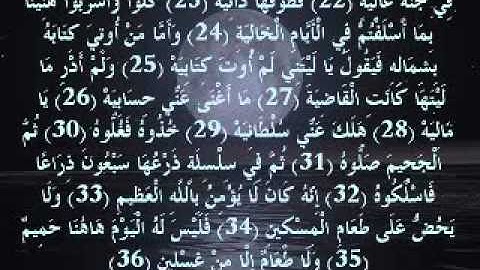 فِي جَنَّةٍ عَالِيَةٍ (22) قُطُوفُهَا دَانِيَةٌ (23) كُلُوا وَاشْرَبُوا هَنِيئًا
بِمَا أَسْلَفْتُمْ فِي الْأَيَّامِ الْخَالِيَةِ (24) وَأَمَّا مَنْ أُوتِيَ كِتَابَهُ
بِشِمَالِهِ فَيَقُولُ يَا لَيْتَنِي لَمْ أُوتَ كِتَابِيَهْ (25) وَلَمْ أَدْرِ مَا
لَيْتَهَا كَانَتِ الْقَاضِيَةَ (27) مَا أَغْنَى عَنِّي حِسَابِيَهْ (26) يَا
مَالِيَهْ (28) هَلَكَ عَنِّي سُلْطَانِيَهْ (29) خُذُوهُ فَغُلُّوهُ (30) ثُمَّ
الْجَحِيمَ صَلُّوهُ (31) ثُمَّ فِي سِلْسِلَةٍ ذَرْعُهَا سَبْعُونَ ذِرَاعًا
فَاسْلُكُوهُ (32) إِنَّهُ كَانَ لَا يُؤْمِنُ بِاللَّهِ الْعَظِيمِ (33) وَلَا
يَحُضُّ عَلَى طَعَامِ الْمِسْكِينِ (34) فَلَيْسَ لَهُ الْيَوْمَ هَاهُنَا حَمِيمٌ
(35) وَلَا طَعَامٌ إِلَّا مِنْ غِسْلِينٍ (36)